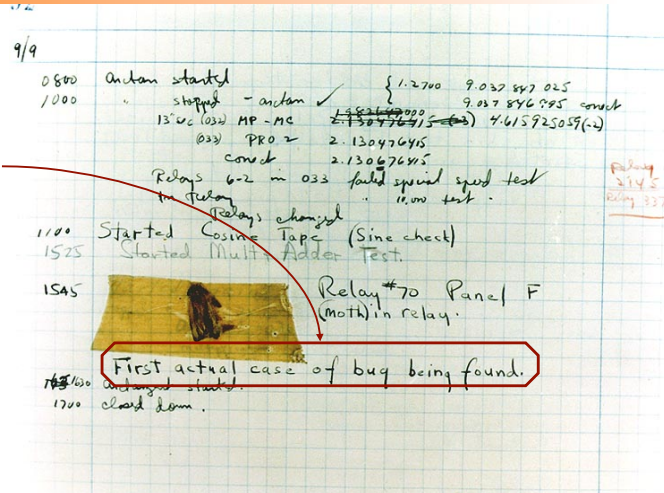 9/9
0800 arctan started
1000 " stopped - arctan ✓ { 1.2700 9.037 847 025
9.037 846 995 correct
13"uc (032) MP - MC 2.130476415 4.615925059(-2)
(033) PRO 2 2.130476415
correct 2.130676415
Relays 6-2 in 033 failed special speed test
in relay " 10,000 test.
Relays changed
1100 Started Cosine Tape (Sine check)
1525 Started Multi Adder Test.
1545 Relay #70 Panel F
(moth) in relay.
First actual case of bug being found.
1630 arctangent started.
1700 closed down.
Relay
Relay 337